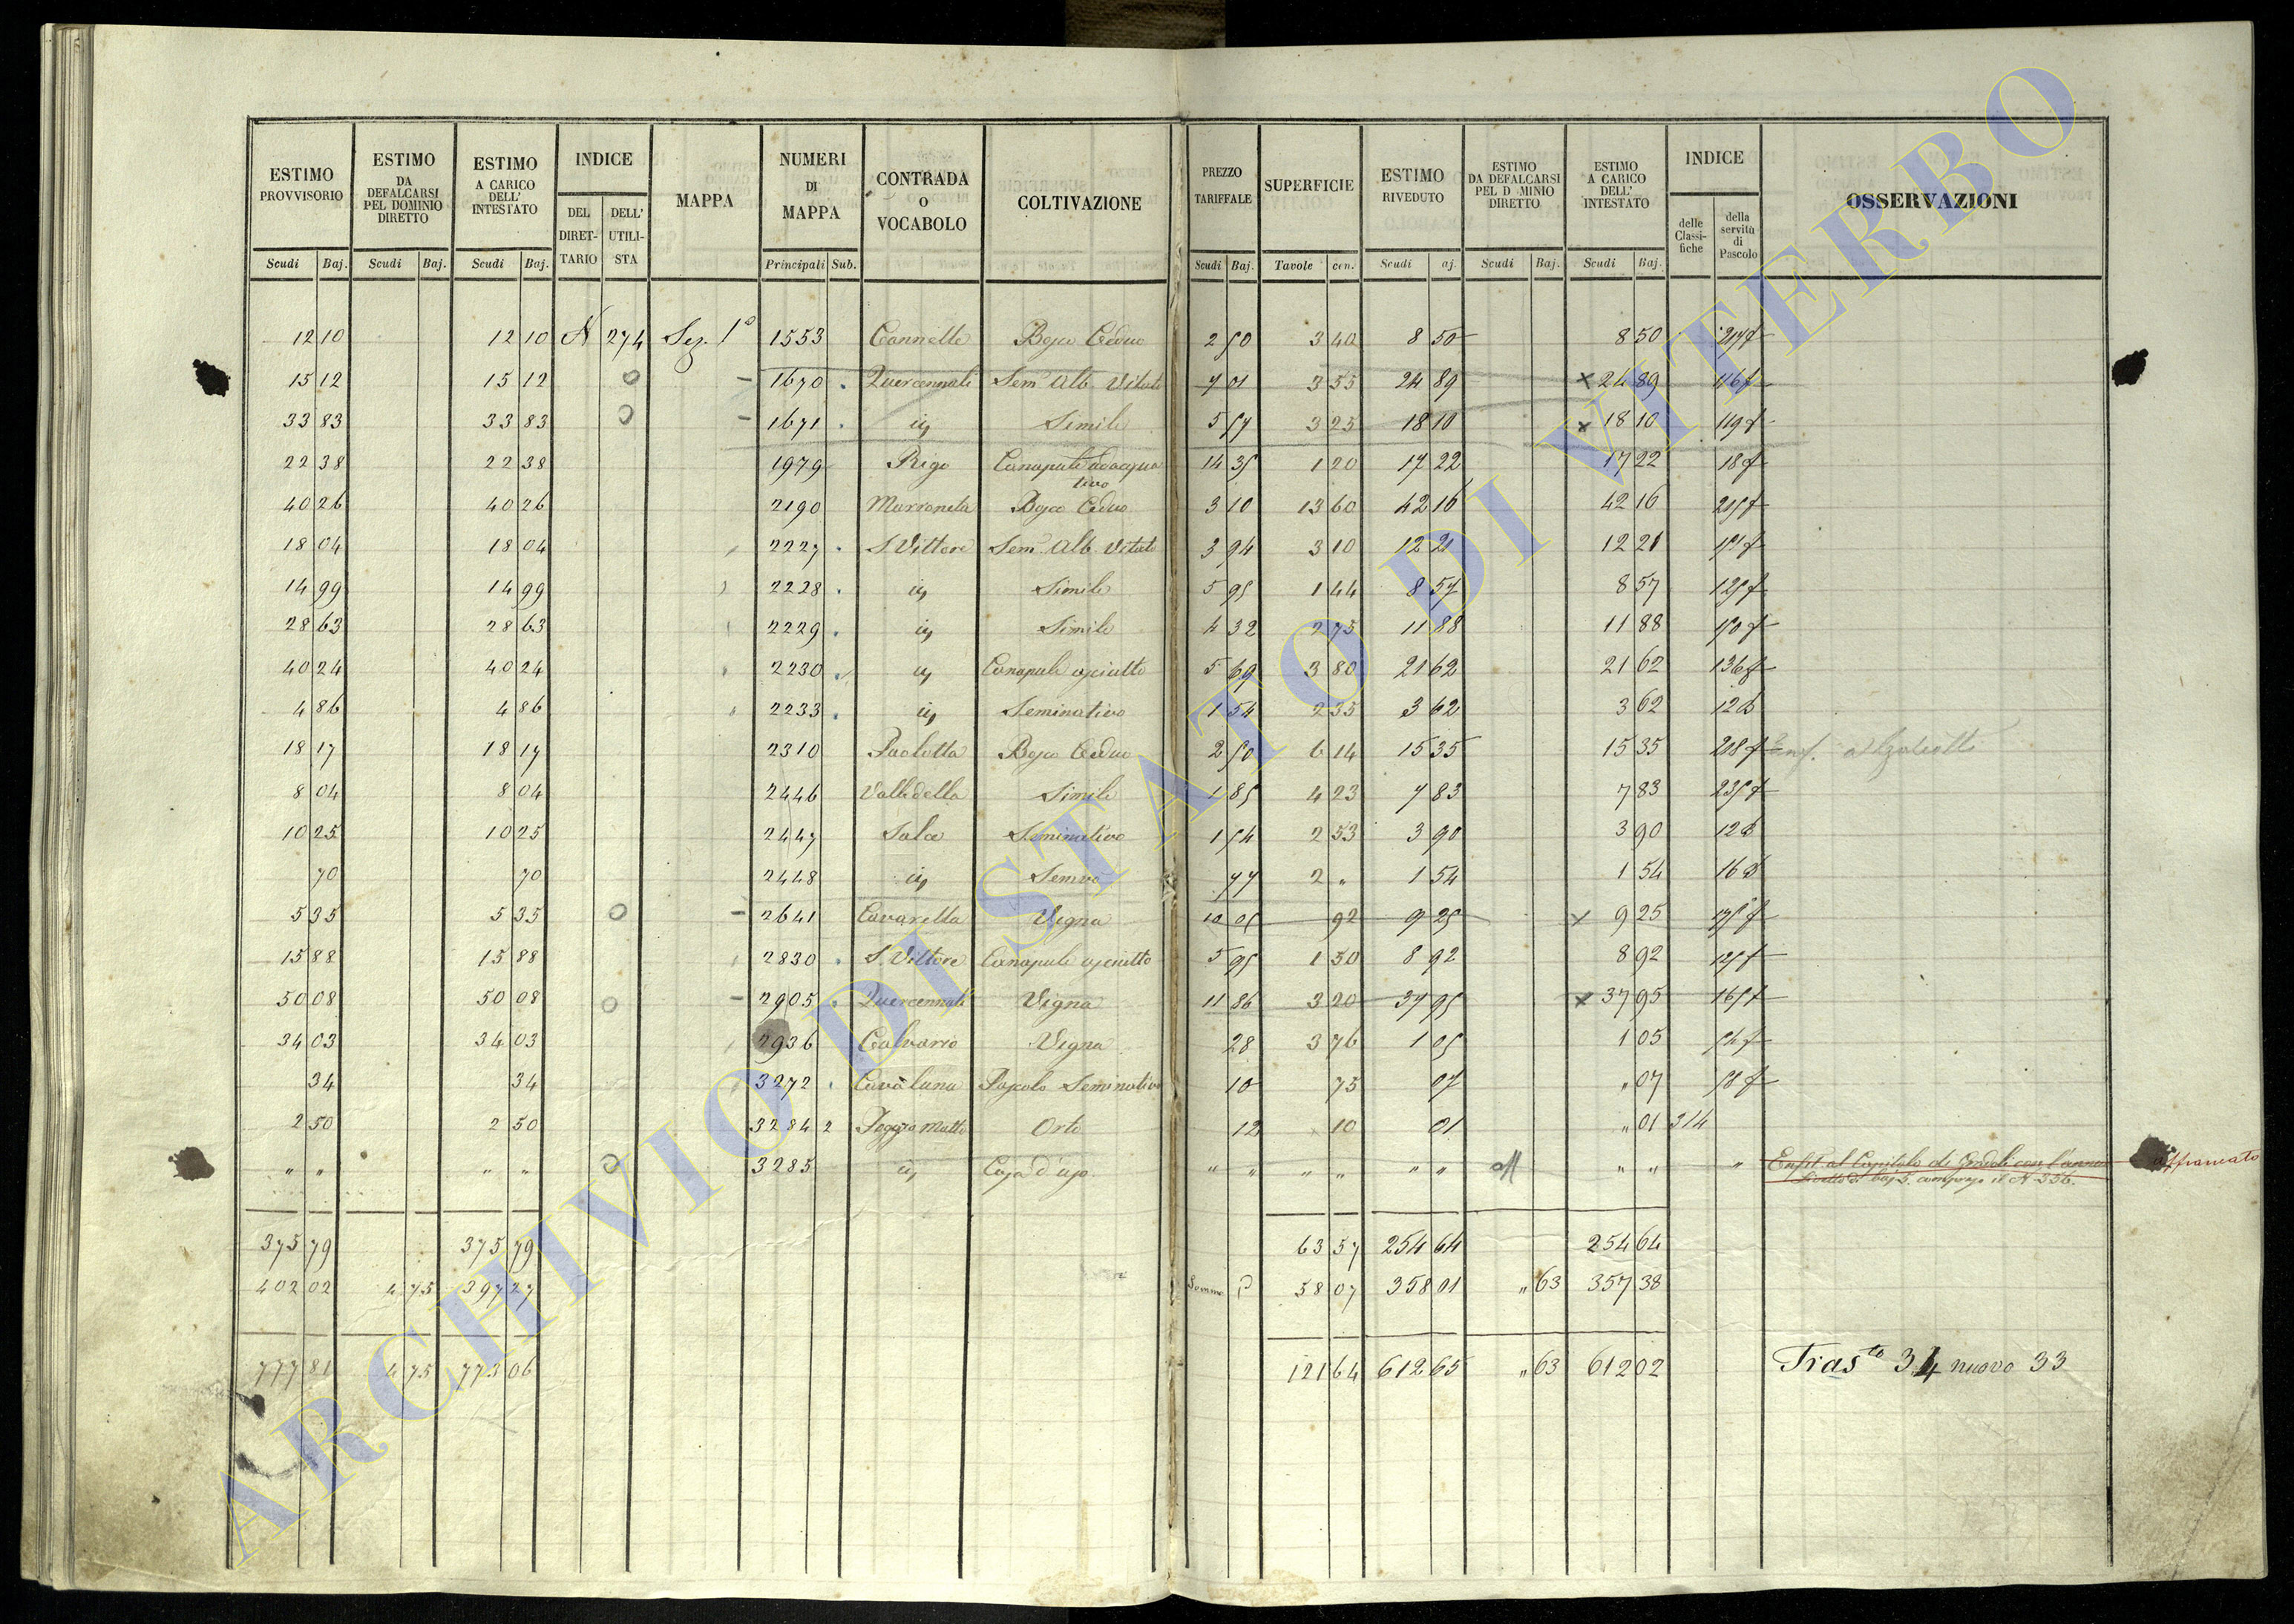 ESTIMO PROVVISORIO Scudi Baj. | ESTIMO DA DEFALCARSI PEL DOMINIO DIRETTO Scudi Baj. | ESTIMO A CARICO DELL' INTESTATO Scudi Baj. | INDICE DEL DIRET-TARIO | DELL' UTILI-STA | MAPPA | NUMERI DI MAPPA Principali Sub. | CONTRADA O VOCABOLO | COLTIVAZIONE | PREZZO TARIFFALE Scudi Baj. | SUPERFICIE Tavole cen. | ESTIMO RIVEDUTO Scudi aj. | ESTIMO DA DEFALCARSI PEL D MINIO DIRETTO Scudi Baj. | ESTIMO A CARICO DELL' INTESTATO Scudi Baj. | INDICE delle Classi-fiche | della servitù di Pascolo | OSSERVAZIONI
12 10 | 12 10 | N 274 | Sez. 1ª | 1553 | Cannelle | Bosco Ceduo | 2 50 | 3 40 | 8 50 | 8 50
15 12 | 15 12 | 0 | 1670 | Quercennale | Semº Alb Vitato | 7 01 | 3 55 | 24 89 | x 24 89 | 116 f
33 83 | 33 83 | 0 | 1671 | id | Simile | 5 57 | 3 25 | 18 10 | x 18 10 | 119 f
22 38 | 22 38 | 1979 | Rigo | Canapule adacqua tivo | 14 35 | 1 20 | 17 22 | 17 22 | 18 f
40 26 | 40 26 | 2190 | Marroneta | Bosco Ceduo | 3 10 | 13 60 | 42 16 | 42 16 | 215 f
18 04 | 18 04 | 2227 | S. Vittore | Semº Alb Vitato | 3 94 | 3 10 | 12 21 | 12 21 | 151 f
14 99 | 14 99 | 2228 | id | Simile | 5 95 | 1 44 | 8 57 | 8 57 | 125 f
28 63 | 28 63 | 2229 | id | Simile | 4 32 | 2 75 | 11 88 | 11 88 | 150 f
40 24 | 40 24 | 2230 | id | Canapule asciutto | 5 69 | 3 80 | 21 62 | 21 62 | 136 f
4 86 | 4 86 | 2233 | id | Seminativo | 1 54 | 2 35 | 3 62 | 3 62
18 17 | 18 17 | 2310 | Paolotta | Bosco Ceduo | 2 50 | 6 14 | 15 35 | 15 35 | 218 f
8 04 | 8 04 | 2446 | Valledella | Simile | 1 85 | 4 23 | 7 83 | 7 83 | 235 f
10 25 | 10 25 | 2447 | Sala | Seminativo | 1 54 | 2 53 | 3 90 | 3 90
70 | 70 | 2448 | id | Semvo | 77 | 2 " | 1 54 | 1 54
5 35 | 5 35 | 0 | 2641 | Cavarella | Vigna | 10 05 | 92 | 9 25 | x 9 25 | 175 f
15 88 | 15 88 | 2830 | S. Vittore | Canapule asciutto | 5 95 | 1 50 | 8 92 | 8 92 | 125 f
50 08 | 50 08 | 0 | 2905 | Quercennale | Vigna | 11 86 | 3 20 | 37 95 | x 37 95 | 165 f
34 03 | 34 03 | 2936 | Calvario | Vigna | 28 | 3 76 | 1 05 | 1 05 | 54 f
34 | 34 | 3272 | Cavaluna | Pascolo Seminativo | 10 | 75 | 07 | " 07 | 58 f
2 50 | 2 50 | 3284 2 | Poggio Matto | Orto | 12 | 10 | 01 | " 01 | 314
" " | " " | 0 | 3285 | id | Casa d'uso | " " | " " | " " | aff | " " | " | Enfit. al Capitolo di Gradoli con l'annuo affrancato
livello di baj 5. compreso il N 356.
375 79 | 375 79 | 63 57 | 254 64 | 254 64
402 02 | 4 75 | 397 27 | Somma | 58 07 | 358 01 | " 63 | 357 38
777 81 | 4 75 | 773 06 | 121 64 | 612 65 | " 63 | 612 02 | Trasto 34 nuovo 33
ARCHIVIO DI STATO DI VITERBO